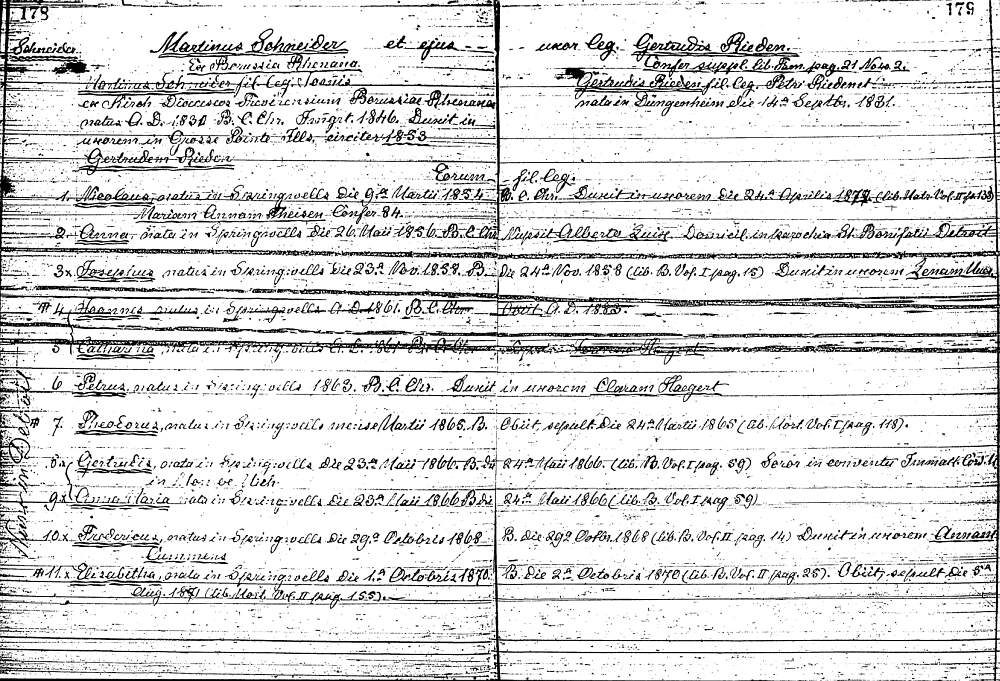 178
179
Schneider.
Martinus Schneider et ejus - - - - uxor leg. Gertrudis Rieden.
Ex Borussia Rhenana.
Confer suppl. lib. Fam. pag. 21 No. 2.
Martinus Schneider fil. leg. Joannis
ex Kirch Dioeceseos Trevirensium Borussiae Rhenanae
natus A. D. 1830 B. C. Chr. Imgrt. 1846. Duxit in
uxorem in Grosse Pointe Ills. circiter 1853
Gertrudem Rieden
Gertrudis Rieden fil. leg. Petri Rieden et
nata in Düngenheim die 14a Septbr. 1831.
Eorum fil. leg.
1. Nicolaus, natus in Springwells die 9a Martii 1854 B. C. Chr. Duxit in uxorem die 24a Aprilis 1877. (lib. Matr. Vol. II p.
Mariam Annam Theisen Confer 84.
2. Anna, nata in Springwells die 26 Maii 1856. B. C. Chr. Nupsit Alberto Domicil. in parochia St. Bonifatii Detroit
3x Josephus natus in Springwells die 23a Nov. 1858. B. Die 24a Nov. 1858 (lib. B. Vol. I pag. 15) Duxit in uxorem Lenam
# 4. Joannes natus in Springwells A. D. 1861. B. C. Chr. Obiit A. D. 1883.
5 Catharina, nata in Springwells B. C. Chr. Haegert
6 Petrus, natus in Springwells 1863. B. C. Chr. Duxit in uxorem Claram Haegert
# 7. Theodorus, natus in Springwells mense Martii 1865. B. Obiit, sepult. die 24a Martii 1865 (lib. Mort. Vol. I pag. 118).
8x Gertrudis, nata in Springwells die 23a Maii 1866. B. die 24a Maii 1866. (lib. B. Vol. I pag. 59) Soror in conventu Immac. Cord.
in Monroe Mich.
9x Anna Maria nata in Springwells die 23a Maii 1866 B. die 24a Maii 1866 (lib. B. Vol. I pag 59)
10.x Fredericus, natus in Springwells die 29a Octobris 1868 B. die 29a Octbr. 1868 (lib. B. Vol. II pag. 14) Duxit in uxorem Annam
Cummens
# 11.x Elisabetha, nata in Springwells die 1a Octobris 1870. B. die 2a Octobris 1870 (lib. B. Vol. II pag. 25). Obiit, sepult. die 5a
Aug. 1871 (lib. Mort. Vol. II pag. 155).